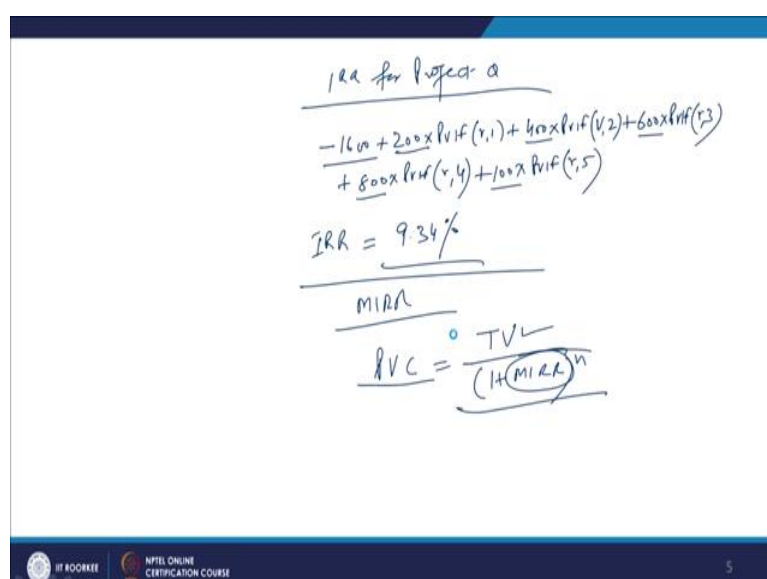 IRR for Project Q
-1600 + 200 x Pvif (r,1) + 400 x Pvif (r,2) + 600 x Pvif (r,3)
+ 800 x Pvif (r,4) + 100 x Pvif (r,5)
IRR = 9.34%
MIRR
PVC = TV
(1+MIRR)^n
IIT ROORKEE
NPTEL ONLINE
CERTIFICATION COURSE
5